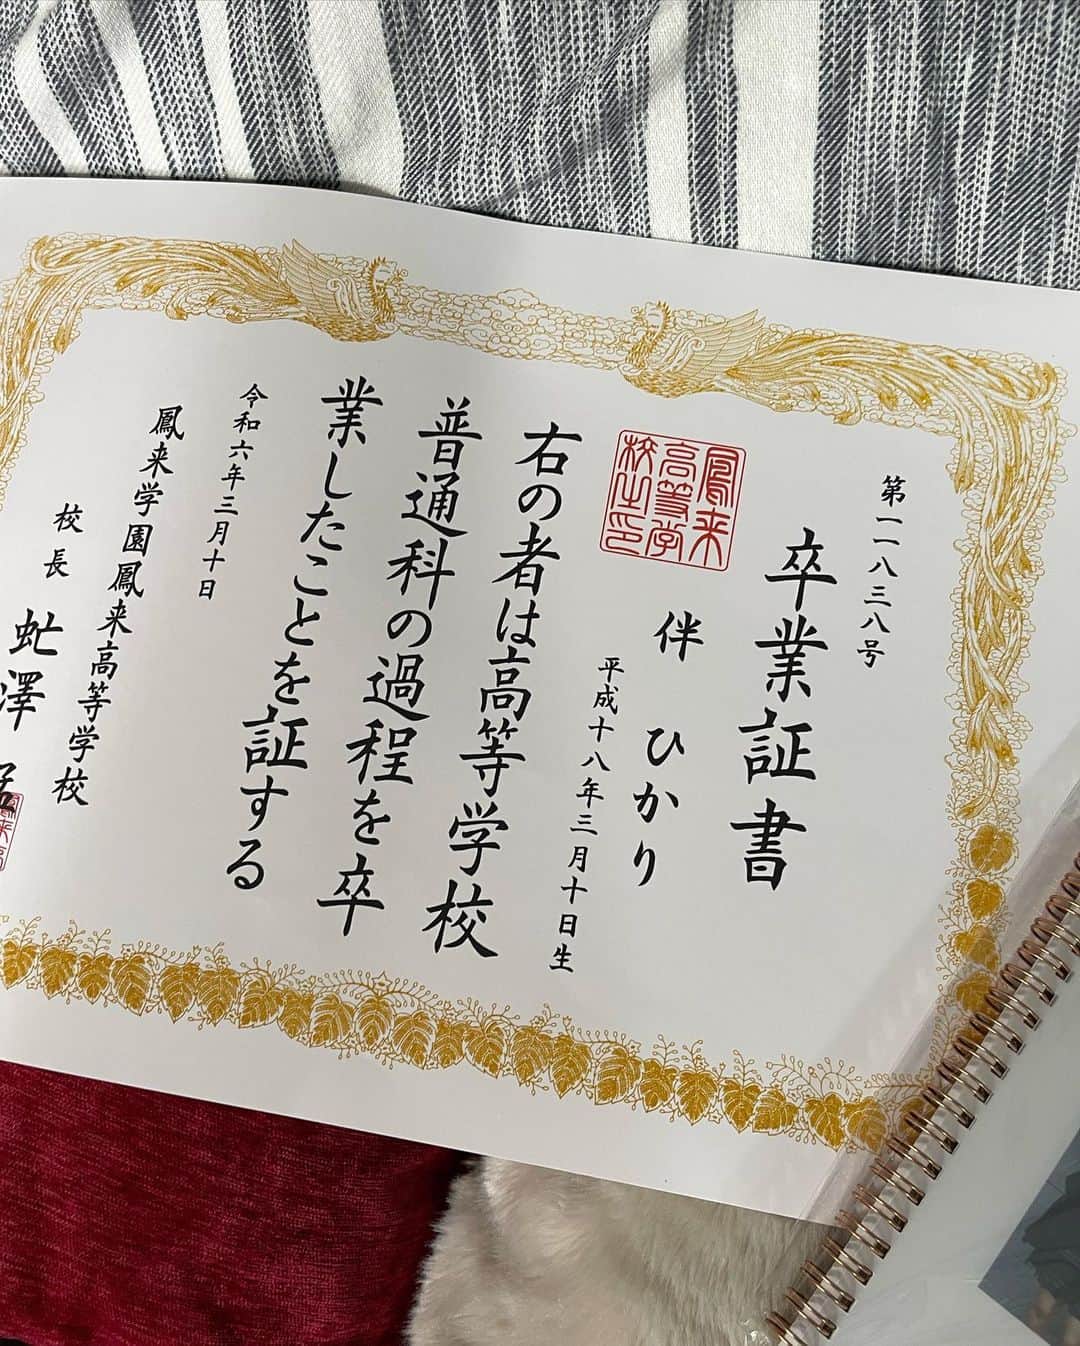 第一一八三八号
卒業証書
鳳来
高等学
校之印
伴 ひかり
平成十八年三月十日生
右の者は高等学校
普通科の過程を卒
業したことを証する
令和六年三月十日
鳳来学園鳳来高等学校
校長 虻澤